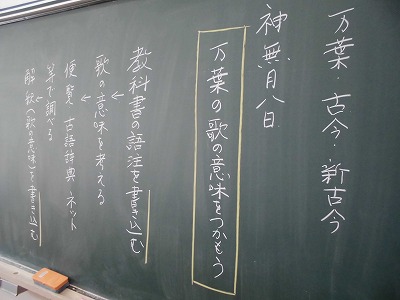 万葉・古今・新古今
神無月八日
万葉の歌の意味をつかもう
教科書の語注を書き込む
↓
歌の意味を考える
↓
便覧 古語辞典 ネット
等で調べる
↓
解釈(歌の意味)を書き込む